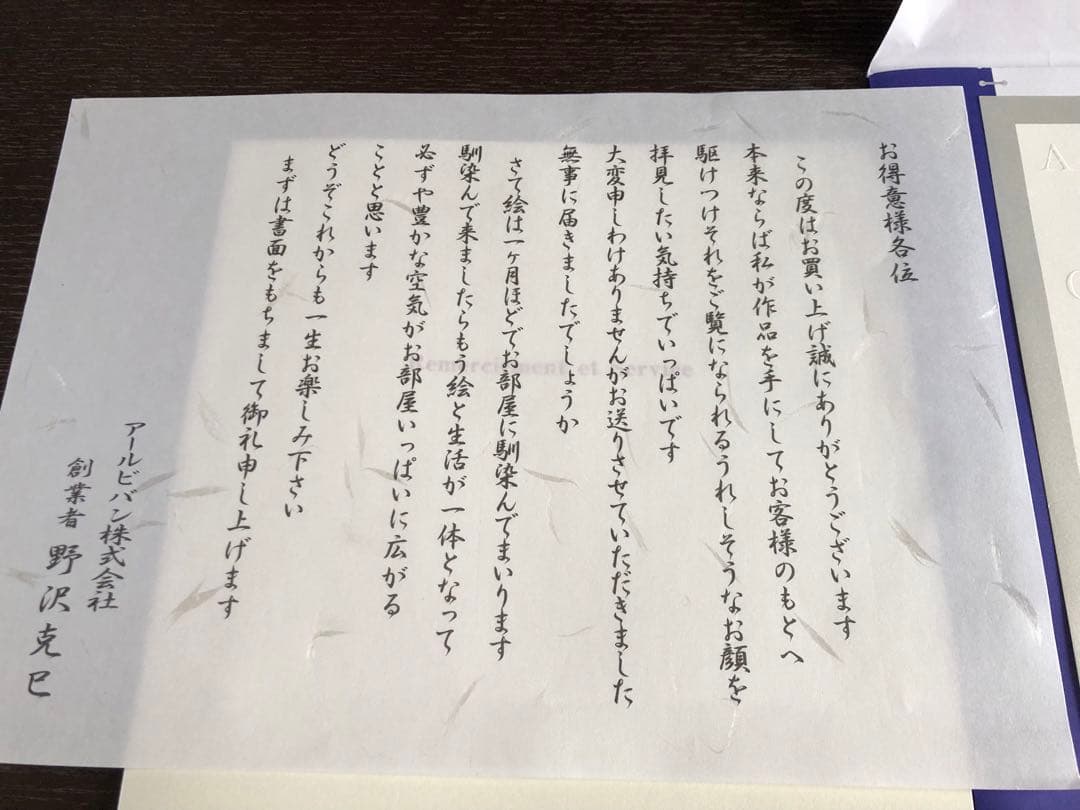 お得意様各位
この度はお買い上げ誠にありがとうございます
本来ならば私が作品を手にしてお客様のもとへ
駆けつけそれをご覧になられるうれしそうなお顔を
拝見したい気持ちでいっぱいです
大変申しわけありませんがお送りさせていただきました
無事に届きましたでしょうか
さて絵は一ヶ月ほどでお部屋に馴染んでまいります
馴染んで来ましたらもう絵と生活が一体となって
必ずや豊かな空気がお部屋いっぱいに広がる
ことと思います
どうぞこれからも一生お楽しみ下さい
まずは書面をもちまして御礼申し上げます
アールビバン株式会社
創業者 野沢克巳
Remerciement et Service